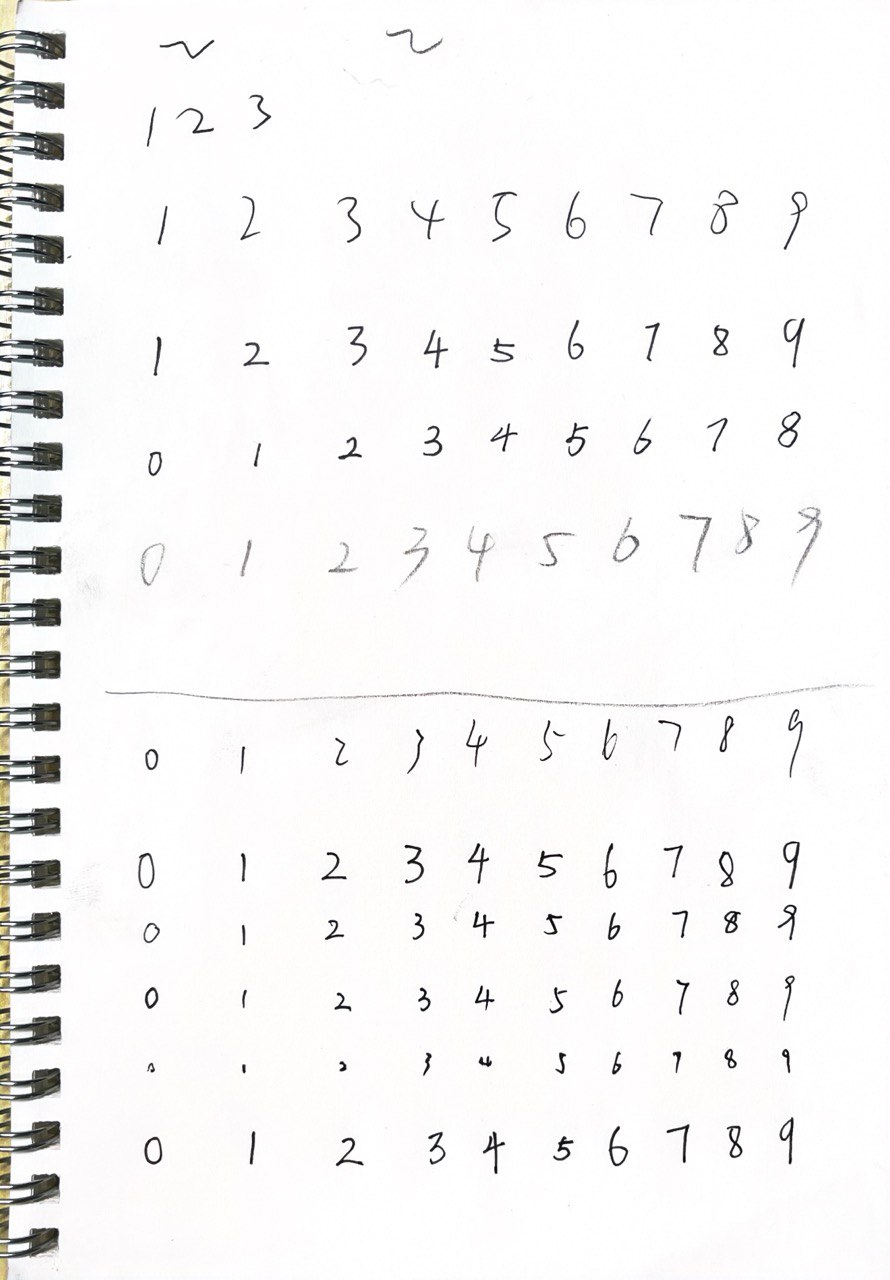 ~ ~
1 2 3
1 2 3 4 5 6 7 8 9
1 2 3 4 5 6 7 8 9
0 1 2 3 4 5 6 7 8
0 1 2 3 4 5 6 7 8 9
0 1 2 3 4 5 6 7 8 9
0 1 2 3 4 5 6 7 8 9
0 1 2 3 4 5 6 7 8 9
0 1 2 3 4 5 6 7 8 9
0 1 2 3 4 5 6 7 8 9
0 1 2 3 4 5 6 7 8 9